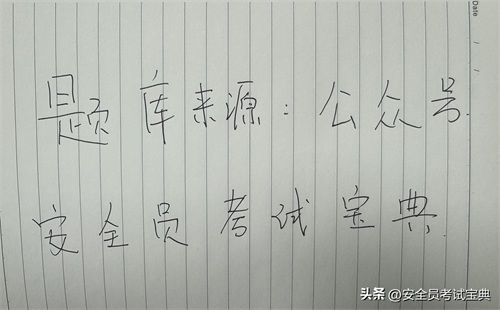 Date
题库来源：公众号
安全员考试宝典
头条 @安全员考试宝典